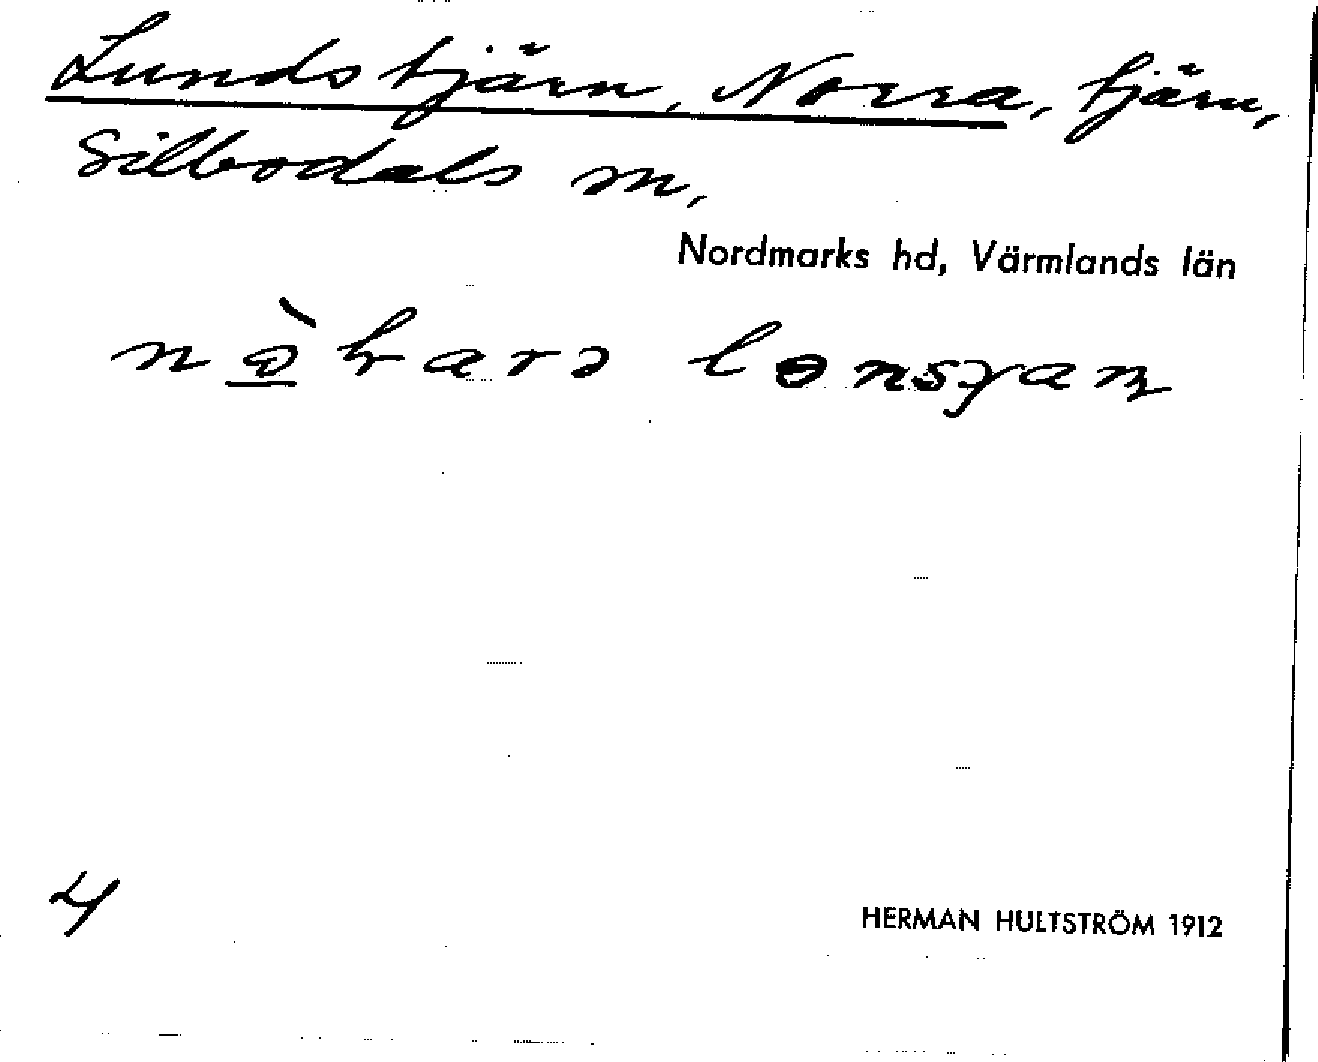 Lundstjärn, Norra, tjärn,
Silbodals sn,
Nordmarks hd, Värmlands län
4
HERMAN HULTSTRÖM 1912